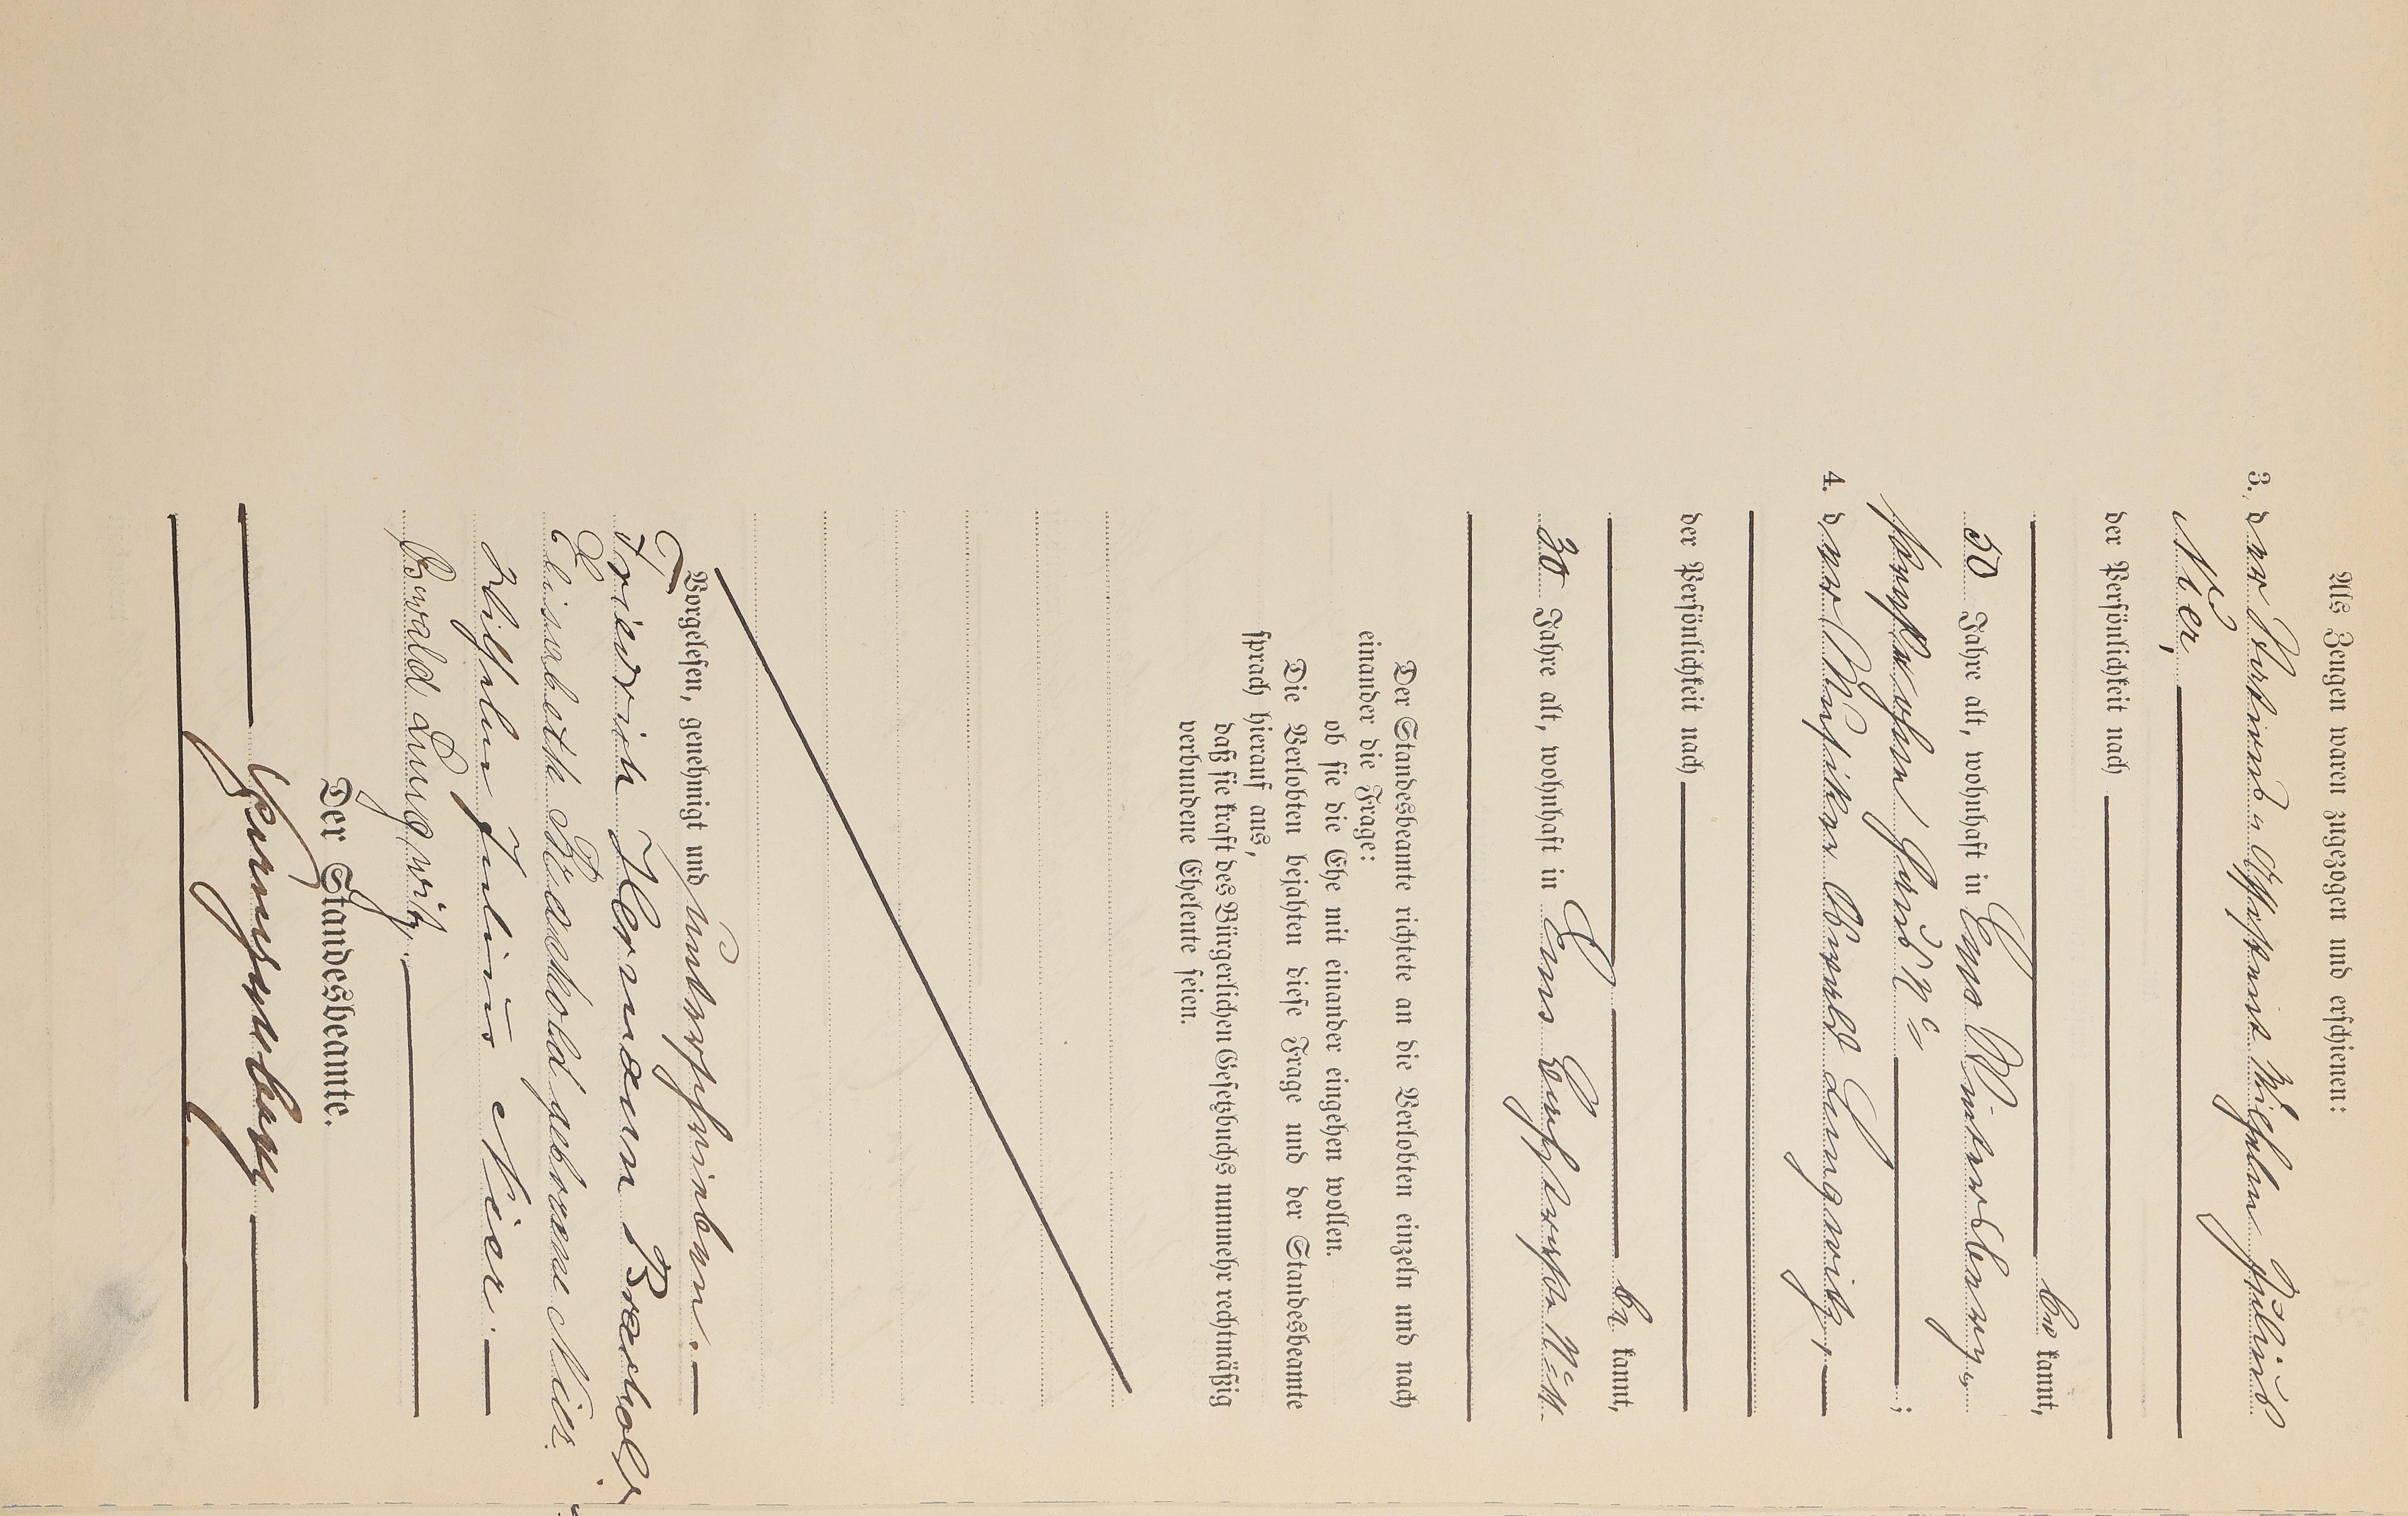 Als Zeugen waren zugezogen und erschienen:
3. der Wilhelm Julius
Nier,
der Persönlichkeit nach
be kannt,
50 Jahre alt, wohnhaft in
Haus N°
4. der Musiker Oswald Lungwitz,
der Persönlichkeit nach
be kannt,
30 Jahre alt, wohnhaft in
Der Standesbeamte richtete an die Verlobten einzeln und nach
einander die Frage:
ob sie die Ehe mit einander eingehen wollen.
Die Verlobten bejahten diese Frage und der Standesbeamte
sprach hierauf aus,
daß sie kraft des Bürgerlichen Gesetzbuchs nunmehr rechtmäßig
verbundene Eheleute seien.
Vorgelesen, genehmigt und unterschrieben.
Friedrich Hermann
Elisabeth geborene Nier.
Wilhelm Julius Nier.
Oswald Lungwitz.
Der Standesbeamte.